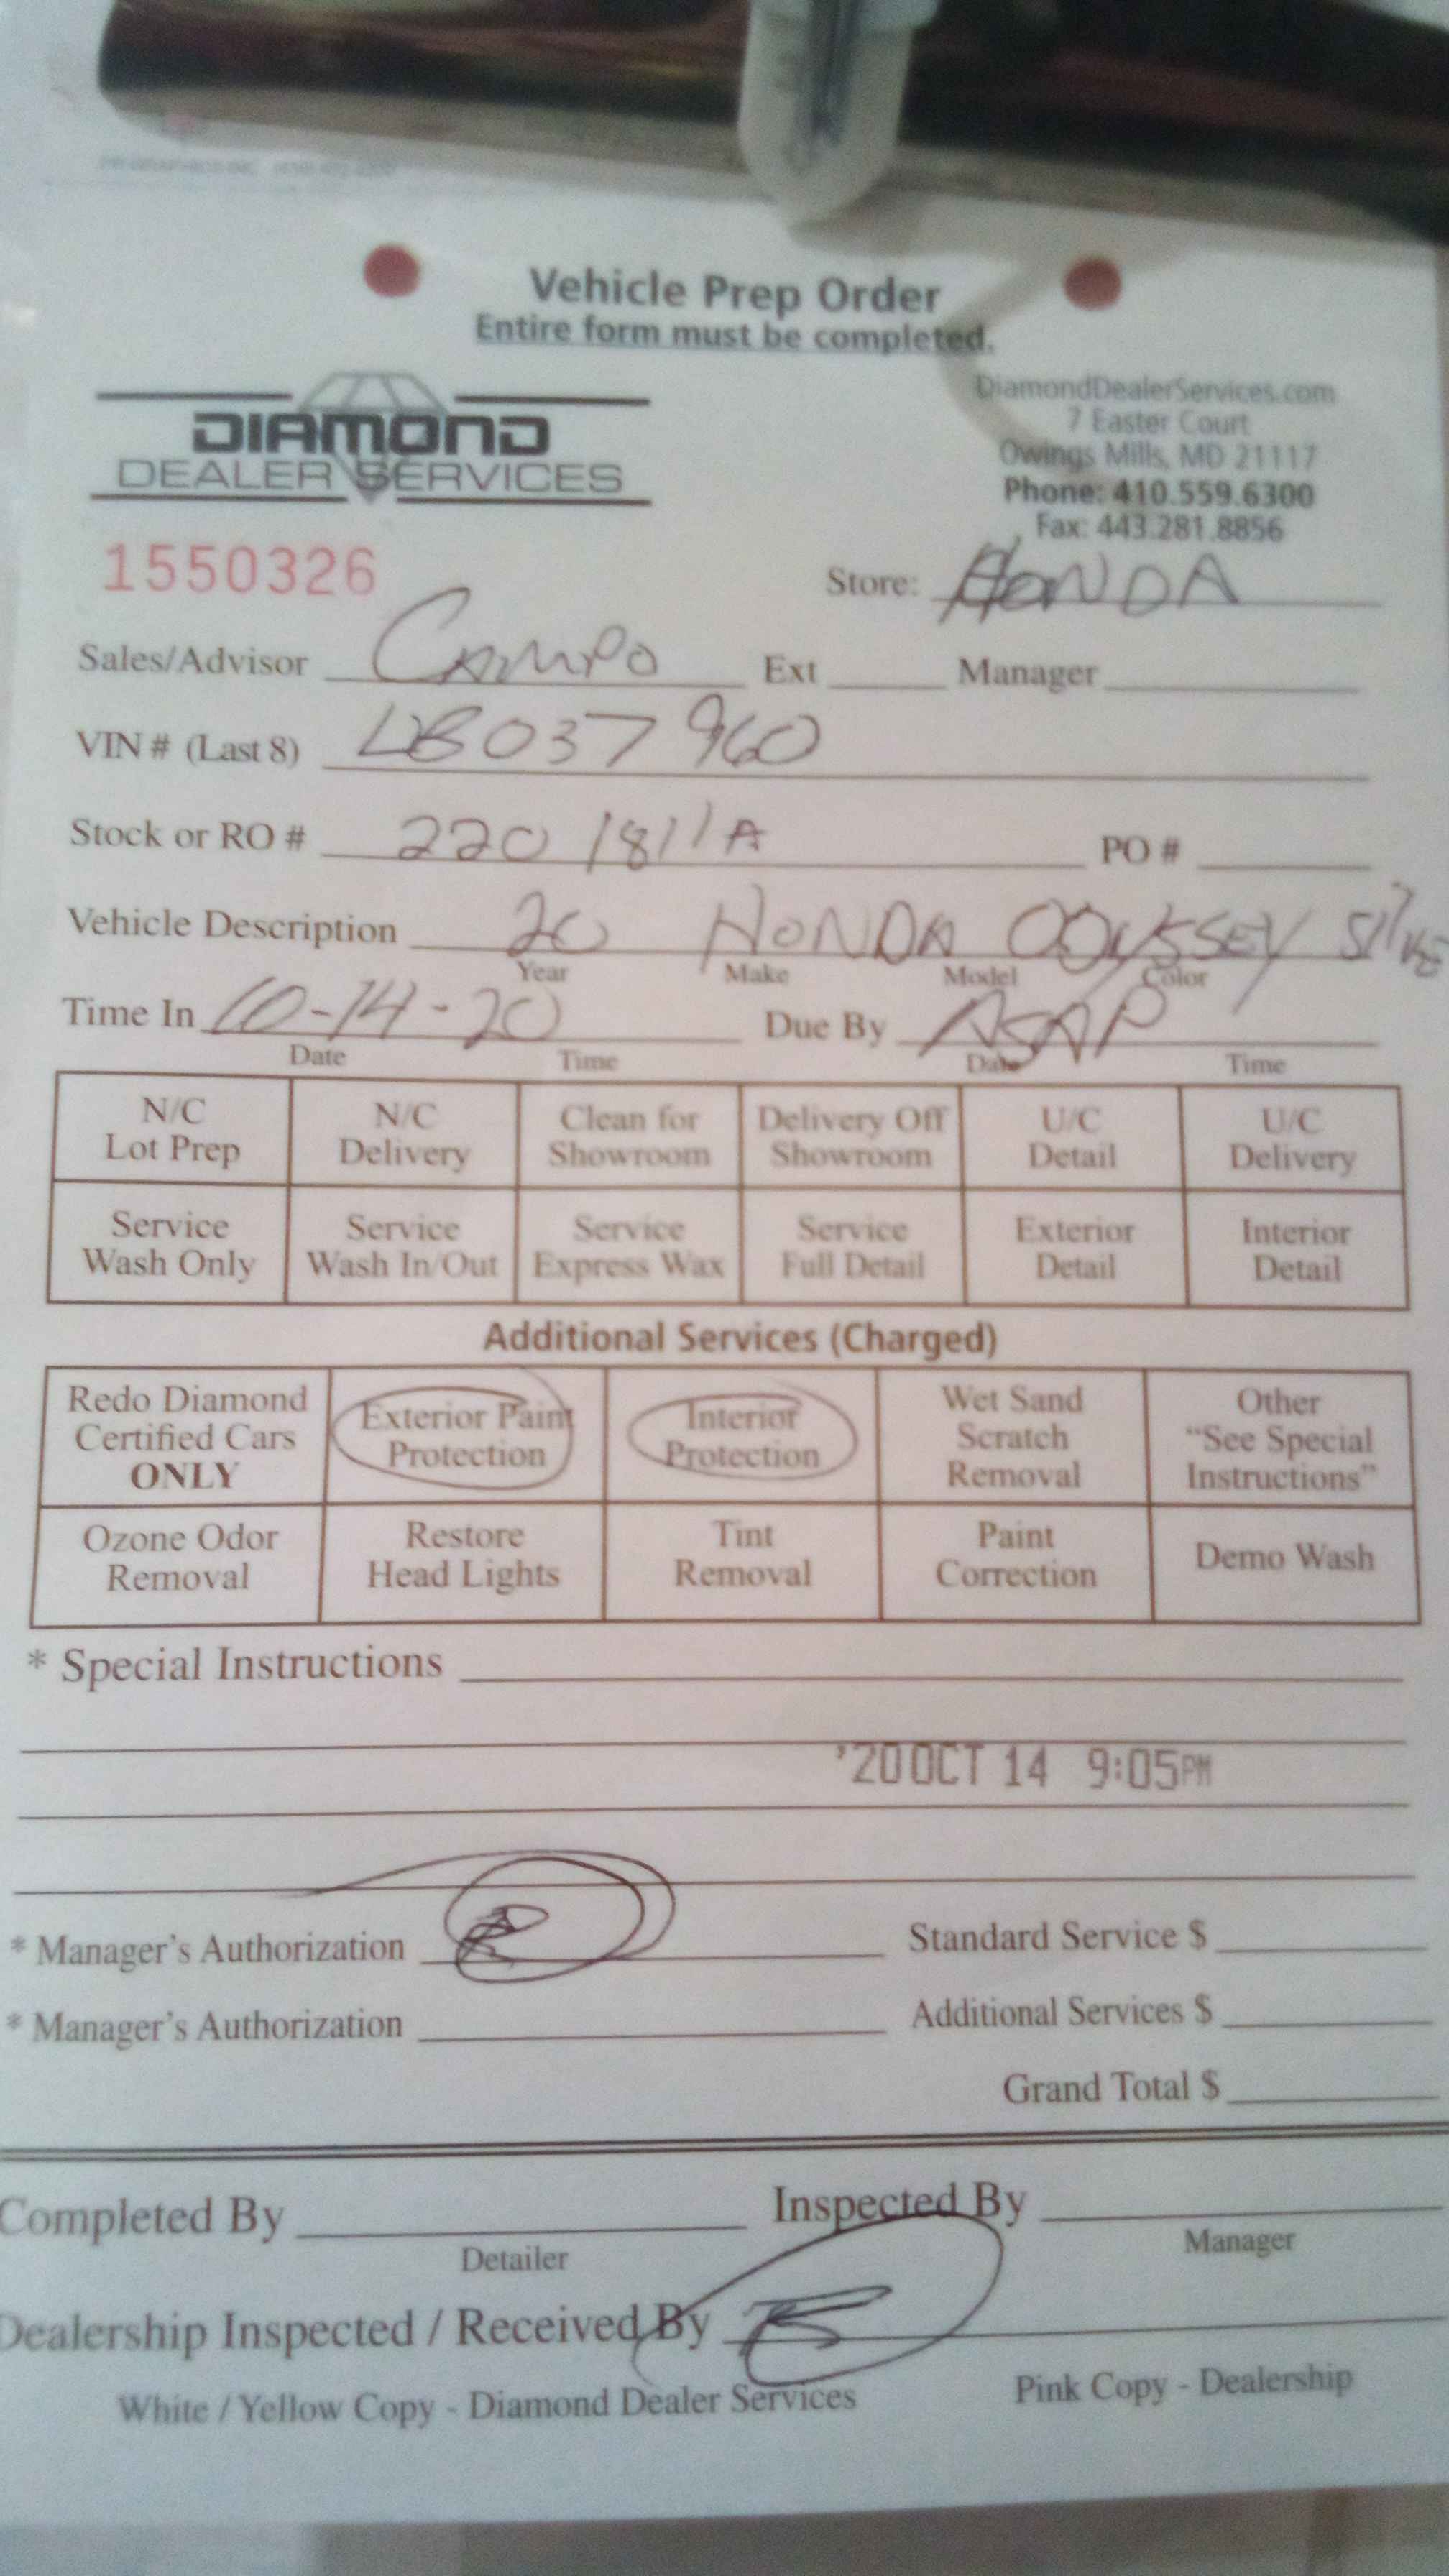 Vehicle Prep Order
Entire form must be completed.
DIAMOND
DEALER SERVICES
DiamondDealerServices.com
7 Easter Court
Owings Mills, MD 21117
Phone: 410.559.6300
Fax: 443.281.8856
1550326
Store: HONDA
Sales/Advisor CAMPO Ext Manager
VIN # (Last 8) LB037960
Stock or RO # 2201811A PO #
Vehicle Description 20 HONDA ODYSSEY
Year Make Model Color
Time In 10-14-20 Due By ASAP
Date Time Date Time
N/C N/C Clean for Delivery Off U/C U/C
Lot Prep Delivery Showroom Showroom Detail Delivery
Service Service Service Service Exterior Interior
Wash Only Wash In/Out Express Wax Full Detail Detail Detail
Additional Services (Charged)
Redo Diamond Exterior Paint Interior Wet Sand Other
Certified Cars Protection Protection Scratch "See Special
ONLY Removal Instructions"
Ozone Odor Restore Tint Paint Demo Wash
Removal Head Lights Removal Correction
* Special Instructions
'20 OCT 14 9:05PM
* Manager's Authorization Standard Service $
* Manager's Authorization Additional Services $
Grand Total $
Completed By Inspected By
Detailer Manager
Dealership Inspected / Received By
White / Yellow Copy - Diamond Dealer Services Pink Copy - Dealership